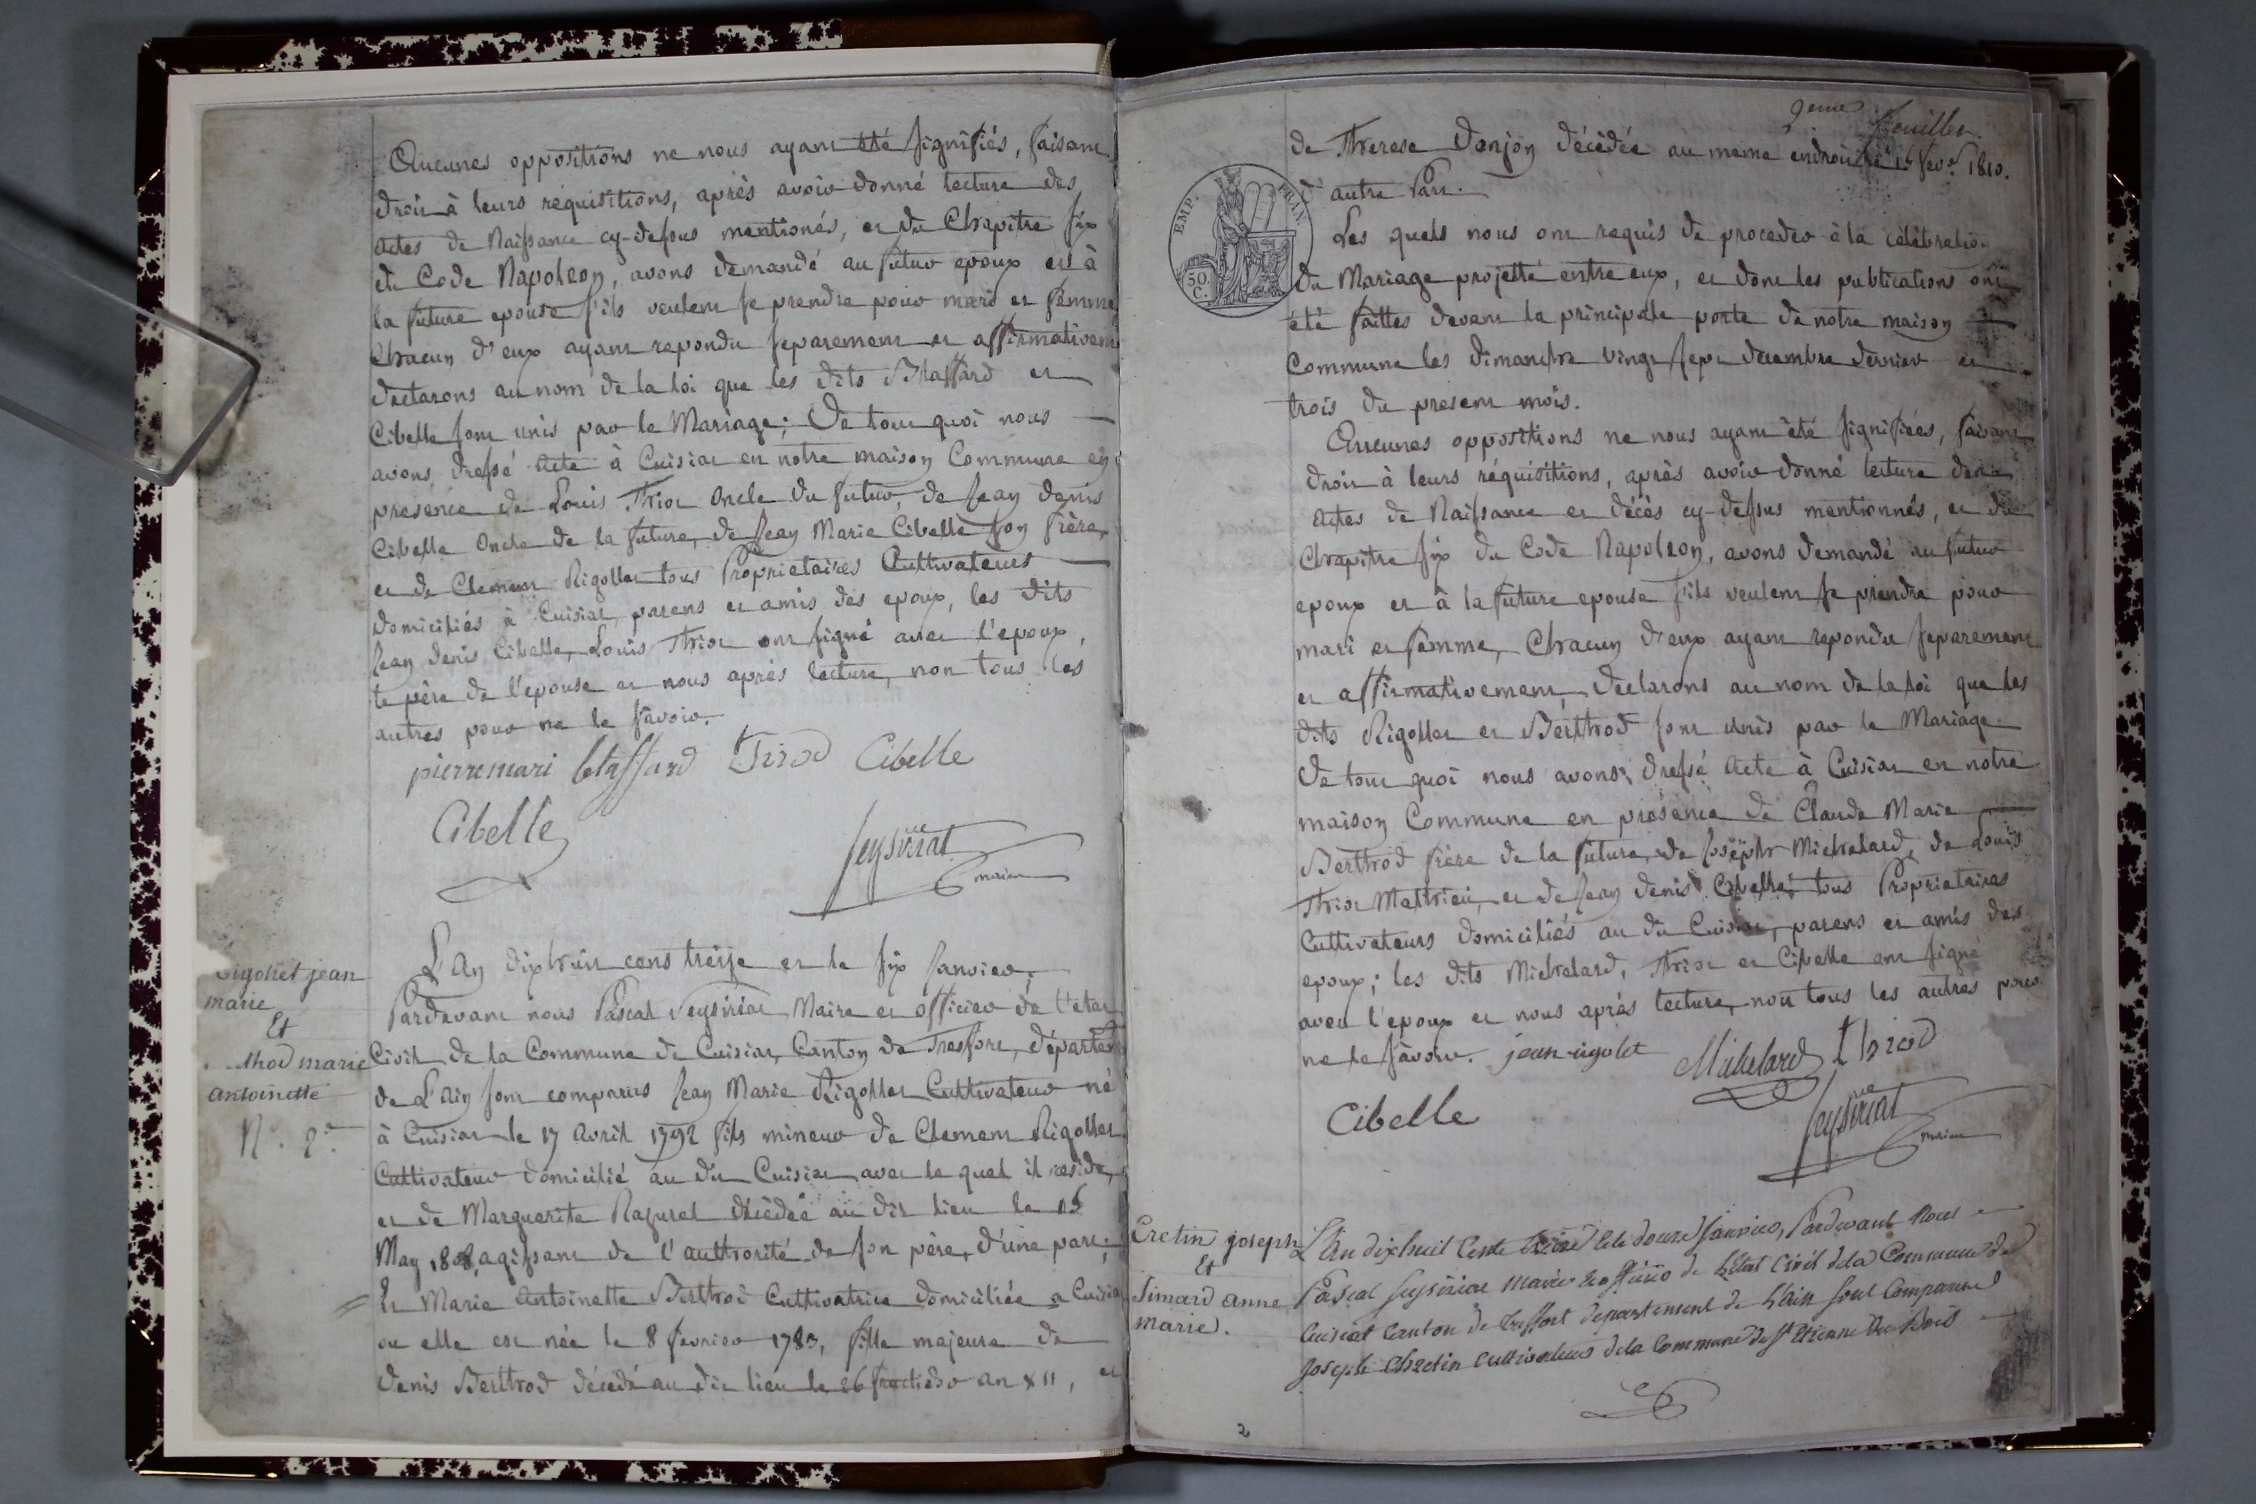 Aucunes oppositions ne nous ayant été signifiés, faisant
droit à leurs réquisitions, après avoir donné lecture des
actes de Naissance cy-dessus mentionés, et du Chapitre six
du Code Napoleon, avons demandé au futur epoux et à
la future epouse s'ils veulent se prendre pour mari et femme
Chacun d'eux ayant repondu separement et affirmativem
declarons au nom de la loi que les dits Blaffard et
Cibelle sont unis par le Mariage; De tout quoi nous
avons dressé acte à Cuisiat en notre maison Commune en
presence de Louis Thriot oncle du futur, de Jean denis
Cibelle Oncle de la future, de Jean Marie Cibelle son frère,
et de Clement Rigollet tous Proprietaires Cultivateurs
domiciliés à Cuisiat, parens et amis des epoux, les dits
Jean denis Cibelle, Louis Thriot ont signé avec l'epoux,
le père de l'epouse et nous après lecture, non tous les
autres pour ne le savoir.
pierre mari blaffard Tirod Cibelle
Cibelle
Seysiriat
maire
rigollet jean
marie
Et
thod marie
antoinette
N.° 2.e
L'An dixhuit cens treize et le six Janvier,
Pardevant nous Pascal Seysiriat, Maire et officier de l'etat
Civil de la Commune de Cuisiat, Canton de Treffort, départt
de L'Ain sont comparus Jean Marie Rigollet Cultivateur né
à Cuisiat le 17 Avril 1792 fils mineur de Clement Rigollet
Cultivateur domicilié au dit Cuisiat avec le quel il reside,
et de Marguerite Razurel décédée au dit lieu le 15
May 1808, agissant de l'authorité de son père, d'une part;
Et Marie Antoinette Berthod Cultivatrice domiciliée a Cuisiat
ou elle est née le 8 fevrier 1783, fille majeure de
Denis Berthod décédé au dit lieu le 26 fructidor an XII, et
9eme feuillet
de Therese Donjon décédée au meme endroit le 1 fevr 1810.
d'autre Part.
Les quels nous ont requis de proceder à la célébration
du Mariage projetté entre eux, et dont les publications ont
été faittes devant la principale porte de notre maison
Commune les dimanche vingt sept decembre dernier et
trois du present mois.
Aucunes oppositions ne nous ayant été signifiées, faisant
droit à leurs réquisitions, après avoir donné lecture des
actes de Naissance et décès cy-dessus mentionnés, et du
Chapitre six du Code Napoleon, avons demandé au futur
epoux et à la future epouse s'ils veulent se prendre pour
mari et femme, Chacun d'eux ayant repondu separement
et affirmativement, declarons au nom de la loi que les
dits Rigollet et Berthod sont unis par le Mariage.
De tout quoi nous avons dressé Acte à Cuisiat en notre
maison Commune en présence de Claude Marie
Berthod frère de la future, de Joseph Michelard, de Louis
Thriot Mathieu, et de Jean denis Cibelle tous Proprietaires
Cultivateurs domiciliés au dit Cuisiat, parens et amis des
epoux; les dits Michelard, Thriot et Cibelle ont signé
avec l'epoux et nous après lecture, non tous les autres pour
ne le savoir. jean rigolet Michelard thriod
Cibelle
Seysiriat
maire
EMP. FRAN
50.
C.
Cretin joseph
Et
Simard anne
marie.
L'An dixhuit Cents treize Et le douze Janvier, Pardevant Nous
Pascal Seysiriat maire et officier de L'état Civil de la Commune de
Cuisiat Canton de treffort departement de L'ain sont Comparus
Joseph Chretin cultivateur de la Commune de St Etienne du Bois
2